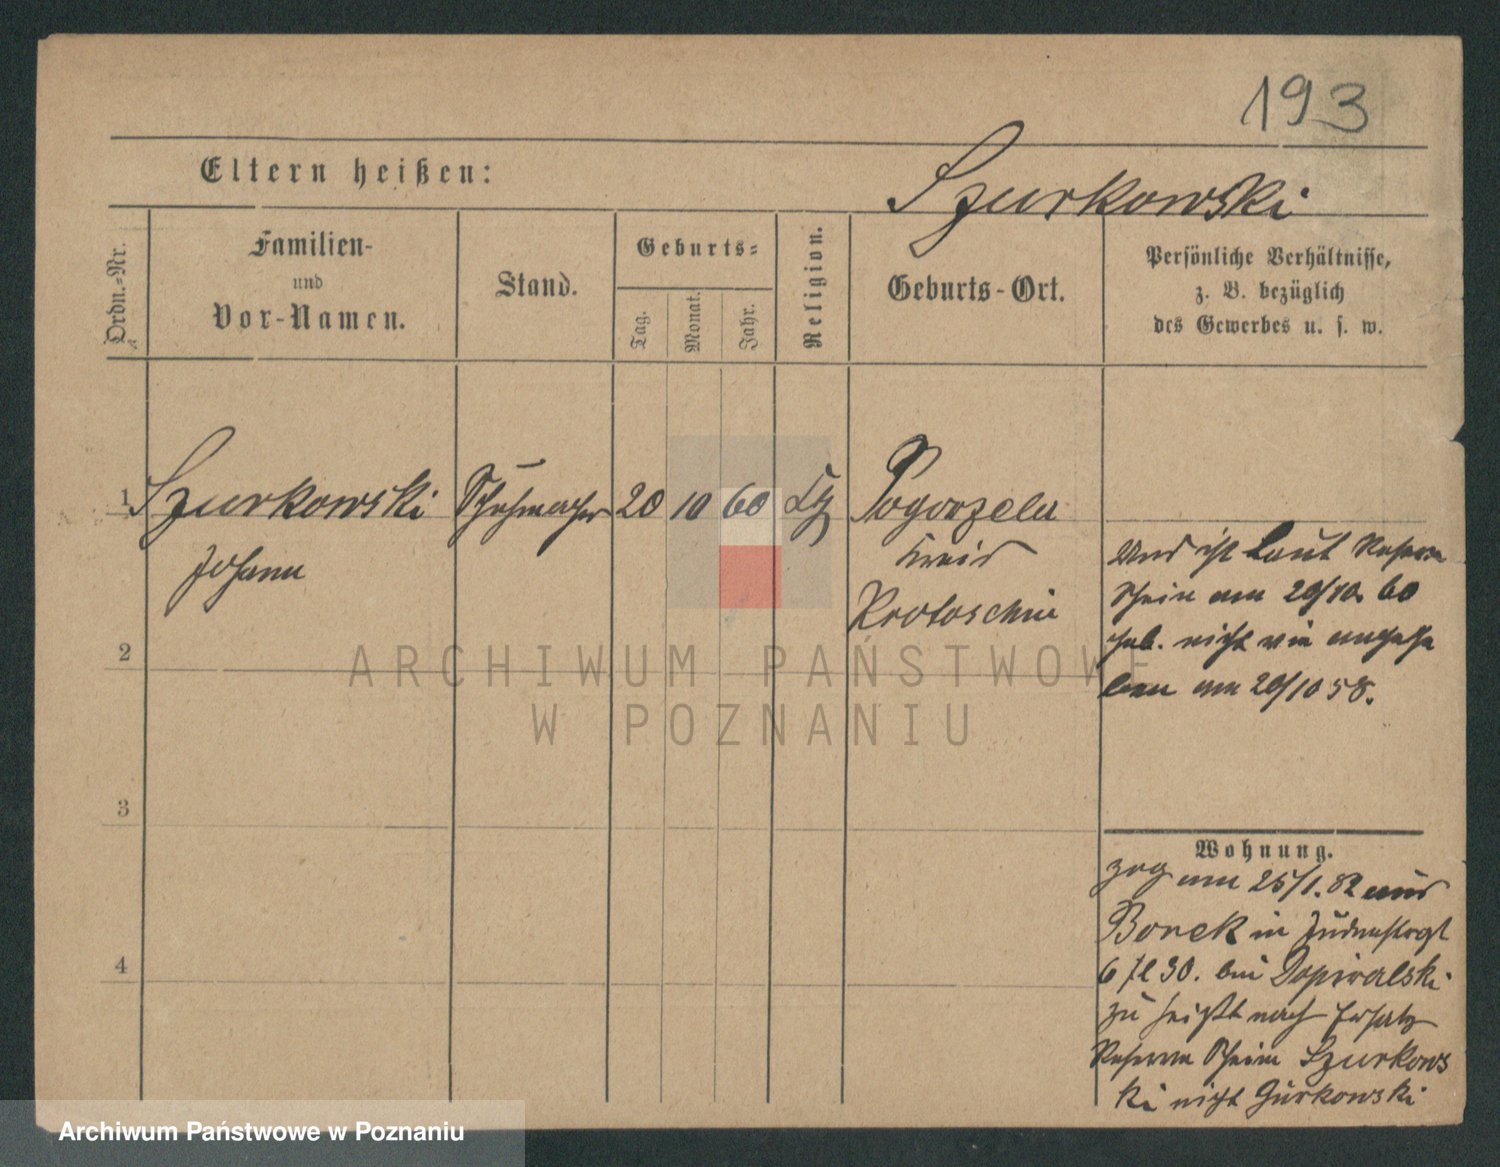 193
Eltern heißen:
Szurkowski
Ordn.-Nr.
Familien-
und
Vor-Namen.
Stand.
Geburts-
Tag.
Monat.
Jahr.
Religion.
Geburts-Ort.
Persönliche Verhältnisse,
z. B. bezüglich
des Gewerbes u. s. w.
1 Szurkowski Schuhmacher 20 10 60 Pogorzela
Johann
Kreis
Krotoschin
Und ist laut Reserve
Schein am 20/10. 60
geb. nicht wie angege
ben am 20/10 58.
2
3
4
Wohnung.
zog am 25/1. 82 aus
Borek in
6 / 30. bei Dopieralski
zu heißt nach Ersatz
Reserve Schein Szurkows
ki nicht Gurkowski
ARCHIWUM PAŃSTWOWE
W POZNANIU
Archiwum Państwowe w Poznaniu